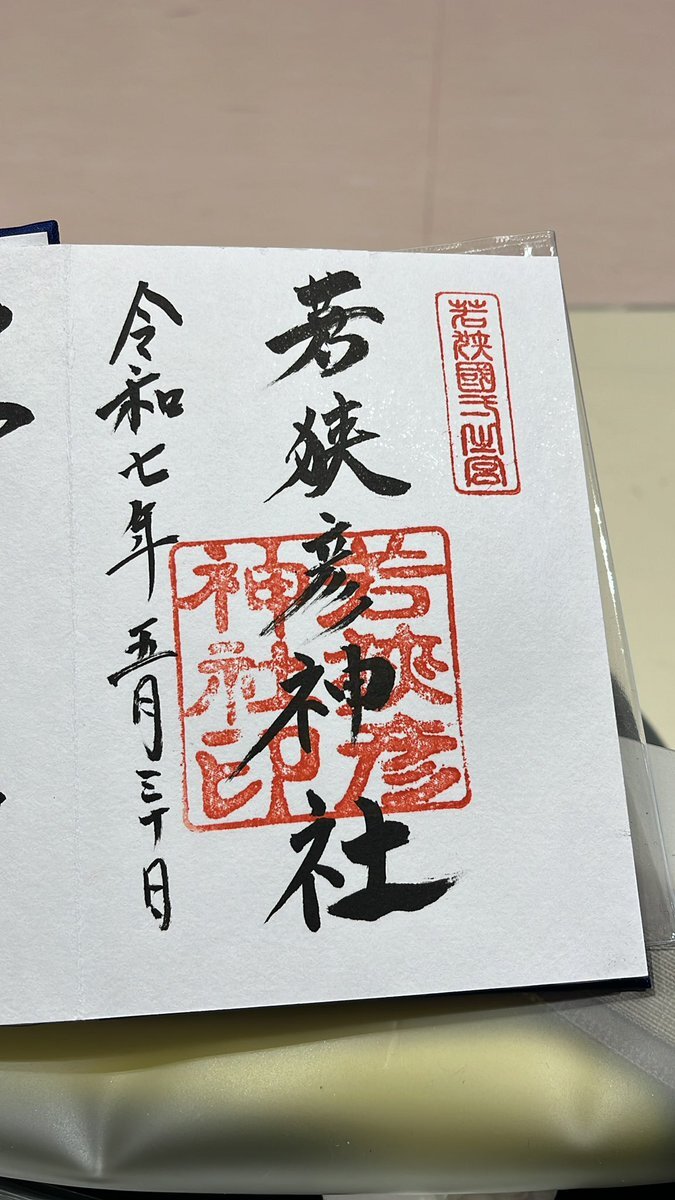 若狭國弌之宮
若狭彦神社
若狭彦
神社印
令和七年五月三十日